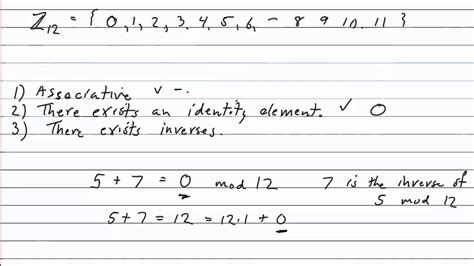 ℤ₁₂ = { 0, 1, 2, 3, 4, 5, 6, - 8 9 10, 11 }
1) Associative ✓ -.
2) There exists an identity element. ✓ 0
3) There exists inverses.
5 + 7 = 0 mod 12 7 is the inverse of
5 mod 12
5+7 = 12 = 12·1 + 0